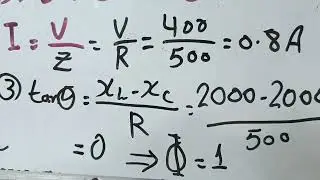 I = V/Z = V/R = 400/500 = 0.8 A
③ tanθ = (x_L - x_C)/R = (2000 - 2000)/500
= 0 ⇒ Φ = 1